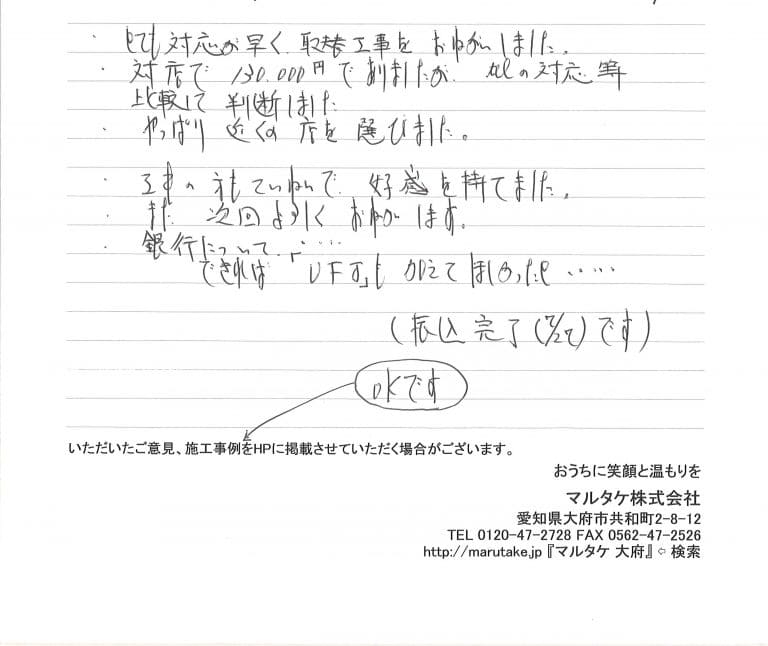 ・とても対応が早く、取替工事をおねがいしました。
・対店で 130.000円でありましたが、他の対応等
比較して判断しました
・やっぱり近くの店を選びました。
・工事の方もていねいで、好感を持てました。
・また次回よろしくおねがいします。
・銀行について、・・・・
できれば「UFJ」も加えてほしかったせ・・・・・
(振込完了(7/27)です)
OKです
いただいたご意見、施工事例をHPに掲載させていただく場合がございます。
おうちに笑顔と温もりを
マルタケ株式会社
愛知県大府市共和町2-8-12
TEL 0120-47-2728 FAX 0562-47-2526
http://marutake.jp 『マルタケ 大府』⇦ 検索